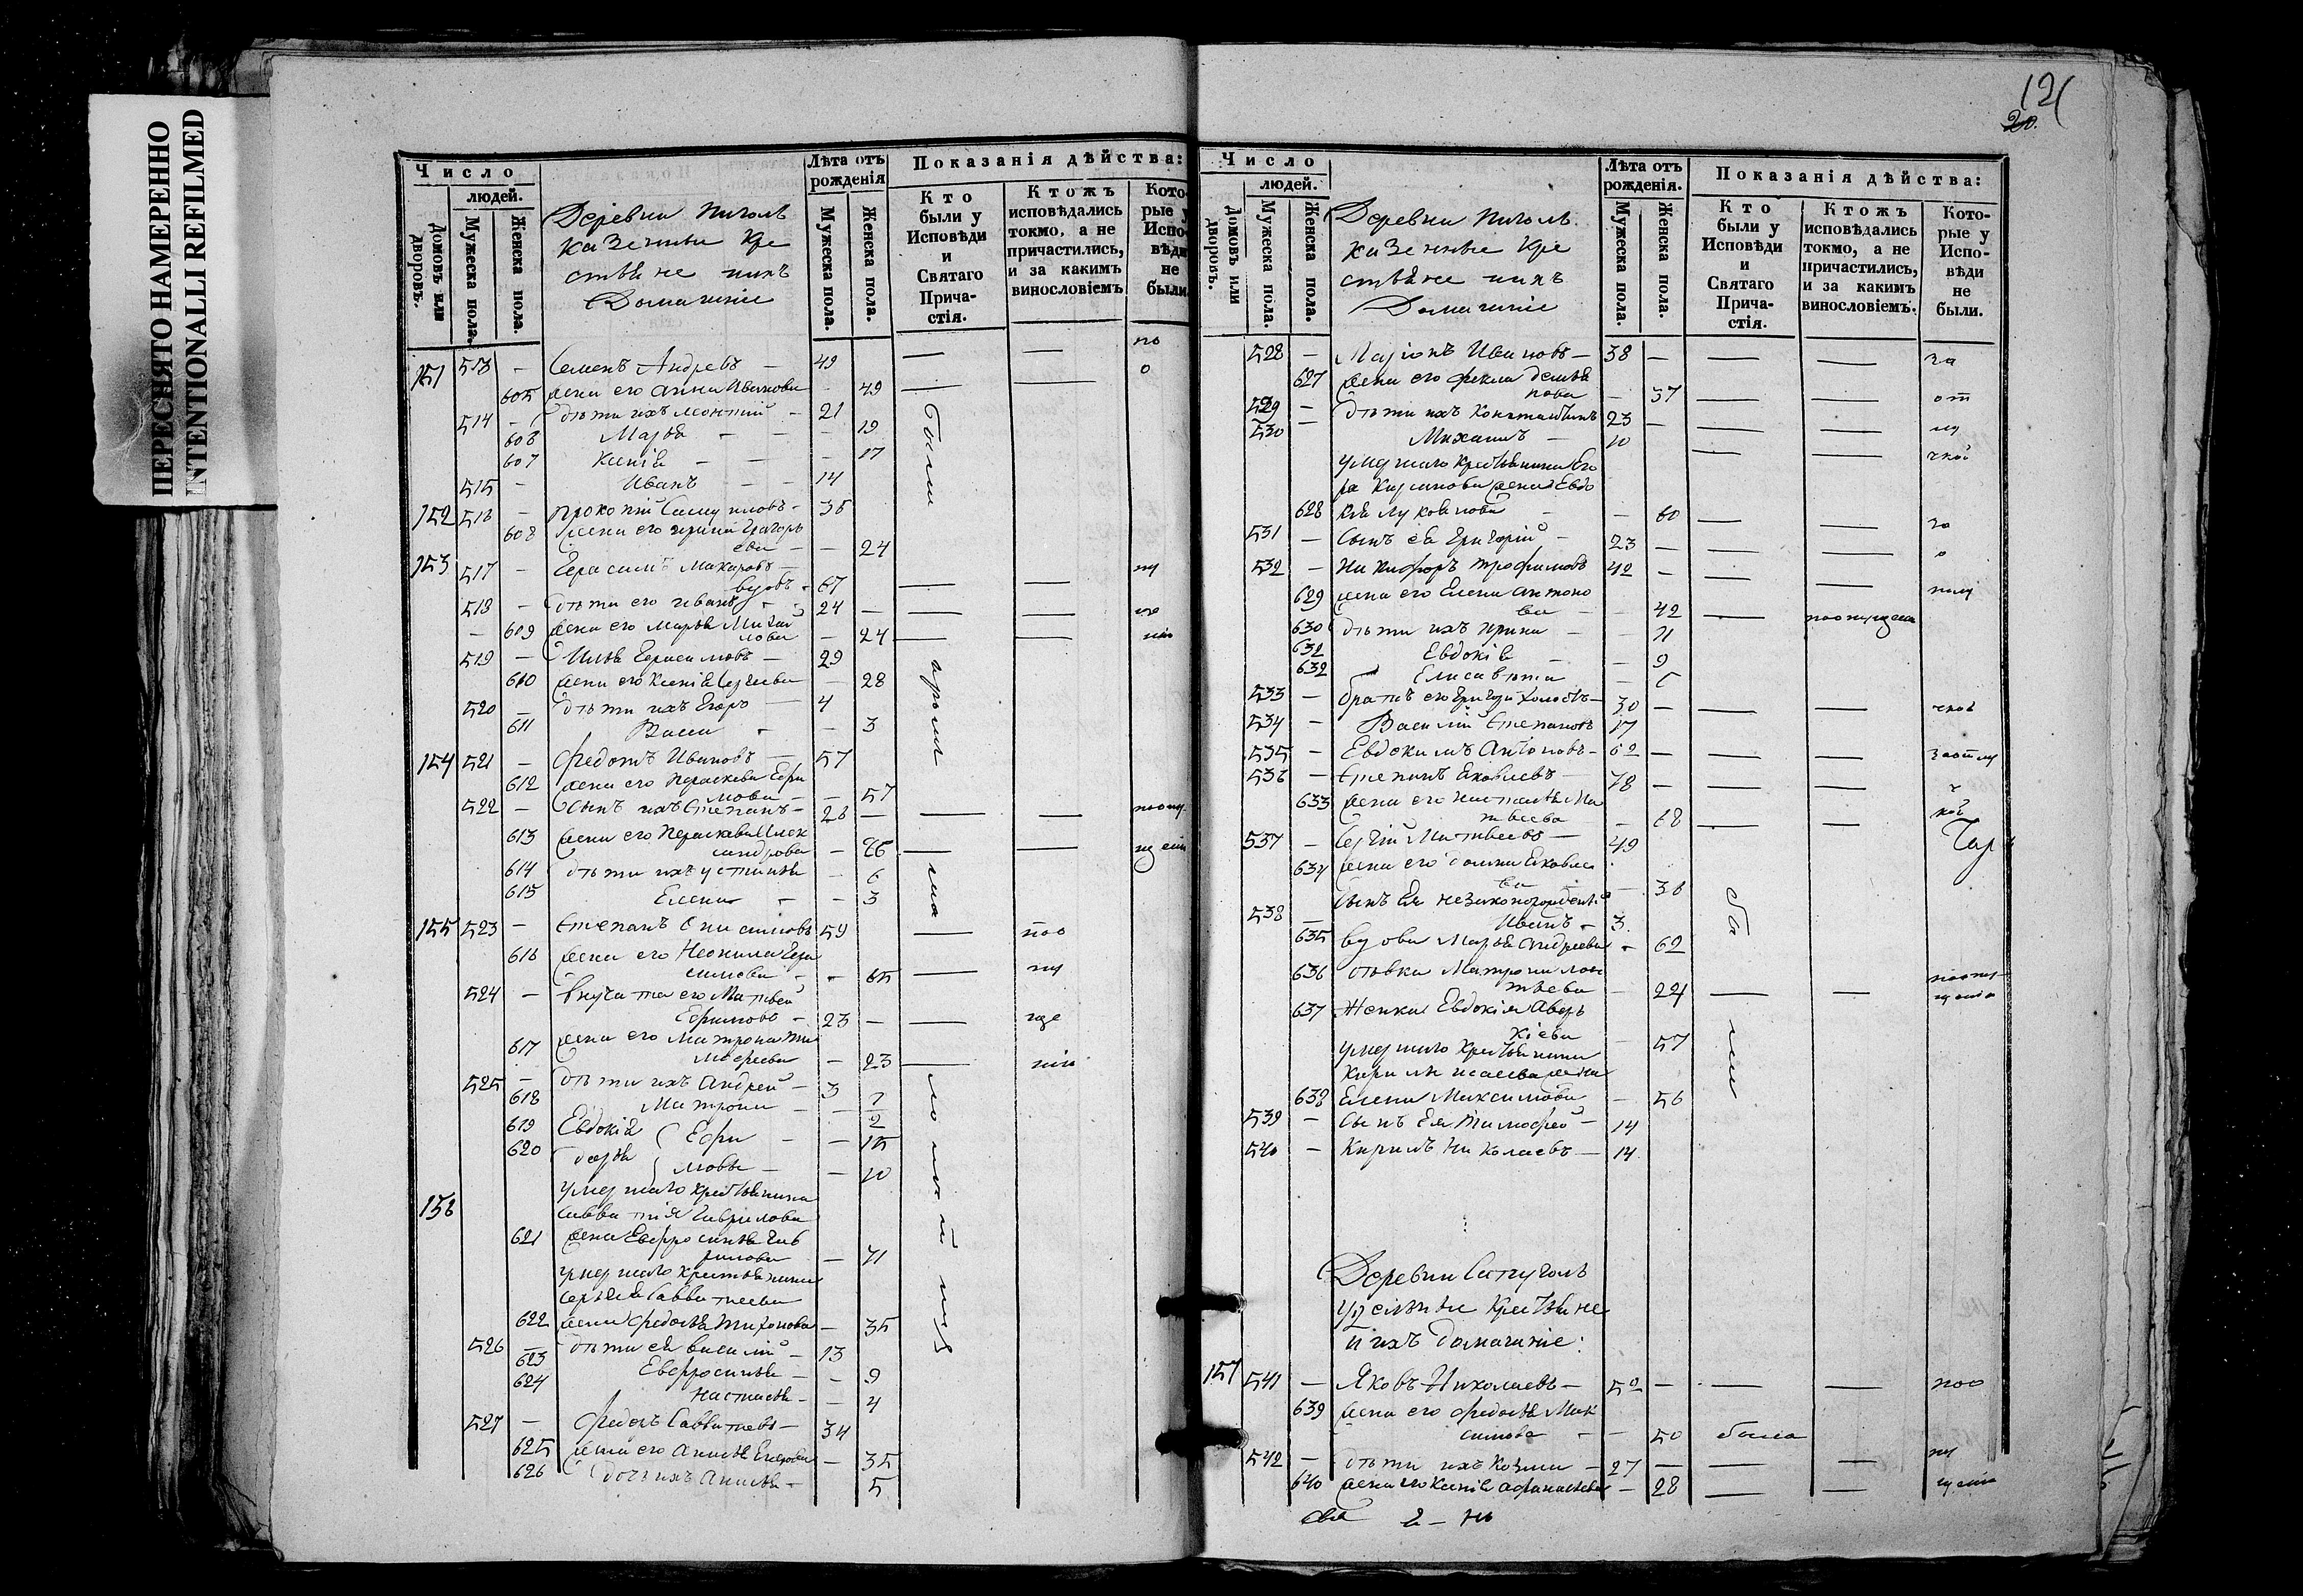 ПЕРЕСНЯТО НАМЕРЕННО
INTENTIONALLI REFILMED
121
20.
Число
людей.
Домовъ или дворовъ.
Мужеска пола.
Женска пола.
Деревни
казенные кре
стьяне и ихъ
Домашніе
Лѣта отъ рожденія
Мужеска пола.
Женска пола.
Показанія дѣйства:
Кто были у Исповѣди и Святаго Прича-стія.
Ктожъ исповѣдались токмо, а не причастились, и за какимъ винословіемъ
Кото-рые у Испо-вѣди не были.
151 513 — Семенъ Андреевъ — 49
605 жена его Анна Иванова 49
514 — дѣти ихъ Леонтій — 21
606 Марья — — — 19
607 Ксенія — — — 17
515 — Иванъ — — 14
152 516 — Прокопій Самуиловъ — 36
608 жена его Ирина Григорь
ева — — 24
153 517 — Герасимъ Макаровъ —
вдовъ — 67
518 — дѣти его Иванъ — 24 —
— 609 жена его Марья Михай
лова — 24
519 — Илья Герасимовъ — 29
610 жена его Ксенія Сергеева — 28
520 — дѣти ихъ Егоръ — 4
611 Васса — — 3
154 521 — Федотъ Ивановъ — 57
612 жена его Параскева Ефи
мова — — 57
522 — сынъ ихъ Степанъ — 26 —
613 жена его Параскева Алек
сандрова — 26
614 дѣти ихъ Устинья — 6
615 Елена — — 3
155 523 — Степанъ Онисимовъ 59
616 жена его Неонила Гера
симова — — 65
524 — внучата его Матвей
Ефимовъ — 23 —
617 жена его Матрона Ти
мофеева — 23
525 — дѣти ихъ Андрей — 3
618 Матрона — — 1
619 Евдокія Ефи — 2
620 Дарья мовы — — 15
— 10
156 умершаго крестьянина
Савватія Гаврилова
621 жена Евфросинья Гав
рилова — 71
умершаго крестьянина
Сергѣя Савватеева
622 жена Федосья Тихонова — 35
526 — дѣти ея Василій — 13
623 Евфросинья — — 9
624 Настасья — — 4
527 — Федоръ Савватеевъ — 34
625 жена его Анисья Егорова — 35
626 дочь ихъ Анисья — 5
Число
людей.
Домовъ или дворовъ.
Мужеска пола.
Женска пола.
Деревни
казенные кре
стьяне и ихъ
Домашніе
Лѣта отъ рожденія.
Мужеска пола.
Женска пола.
Показанія дѣйства:
Кто были у Исповѣди и Святаго Прича-стія.
Ктожъ исповѣдались токмо, а не причастились, и за какимъ винословіемъ.
Кото-рые у Испо-вѣди не были.
528 — Ларіонъ Ивановъ — 38 — за
627 жена его Фекла Демья
нова — 37 от
529 — дѣти ихъ Константинъ 23 — лу
530 — Михаилъ — 10 чкой
умершаго крестьянина Его
ра Кирилова жена Евдо
628 кія Лукоянова — — 60 за
531 — сынъ ея Григорій — 23 — о
532 — Никифоръ Трофимовъ 42 —
629 жена его Елена Антоно
ва — — 42
630 дѣти ихъ Ирина — — 11
632 Евдокія — — 9
632 Елисавета — 5
533 — братъ его Григорій холостъ — 30 —
534 — Василій Степановъ 17
535 — Евдокимъ Антоновъ — 62 —
536 — Степанъ Яковлевъ — 78 —
633 жена его Настасья Ма
твеева — 68
537 — Сергій Матвеевъ — 49
634 жена его Домна Яковле
ва — — 36
сынъ ея незаконорожденный
538 — Иванъ — 3.
635 вдова Марья Андреева — 62
636 дѣвка Матрона Леон
тьева — 24
637 Женка Евдокія Авер
кіева — 57
умершаго крестьянина
Кирилы Исаева жена
638 Елена Максимова — 56
539 — Сынъ Ея Тимофей — 14
540 — Кирилъ Николаевъ — 14
Деревни
удѣльные крестьяне
и ихъ домашніе:
157 541 — Яковъ Николаевъ — 52 —
639 жена его Федосья Мак
симова — — 50 была
542 — дѣти ихъ Козма — 27 —
640 жена его Ксенія Афанасьева — 28